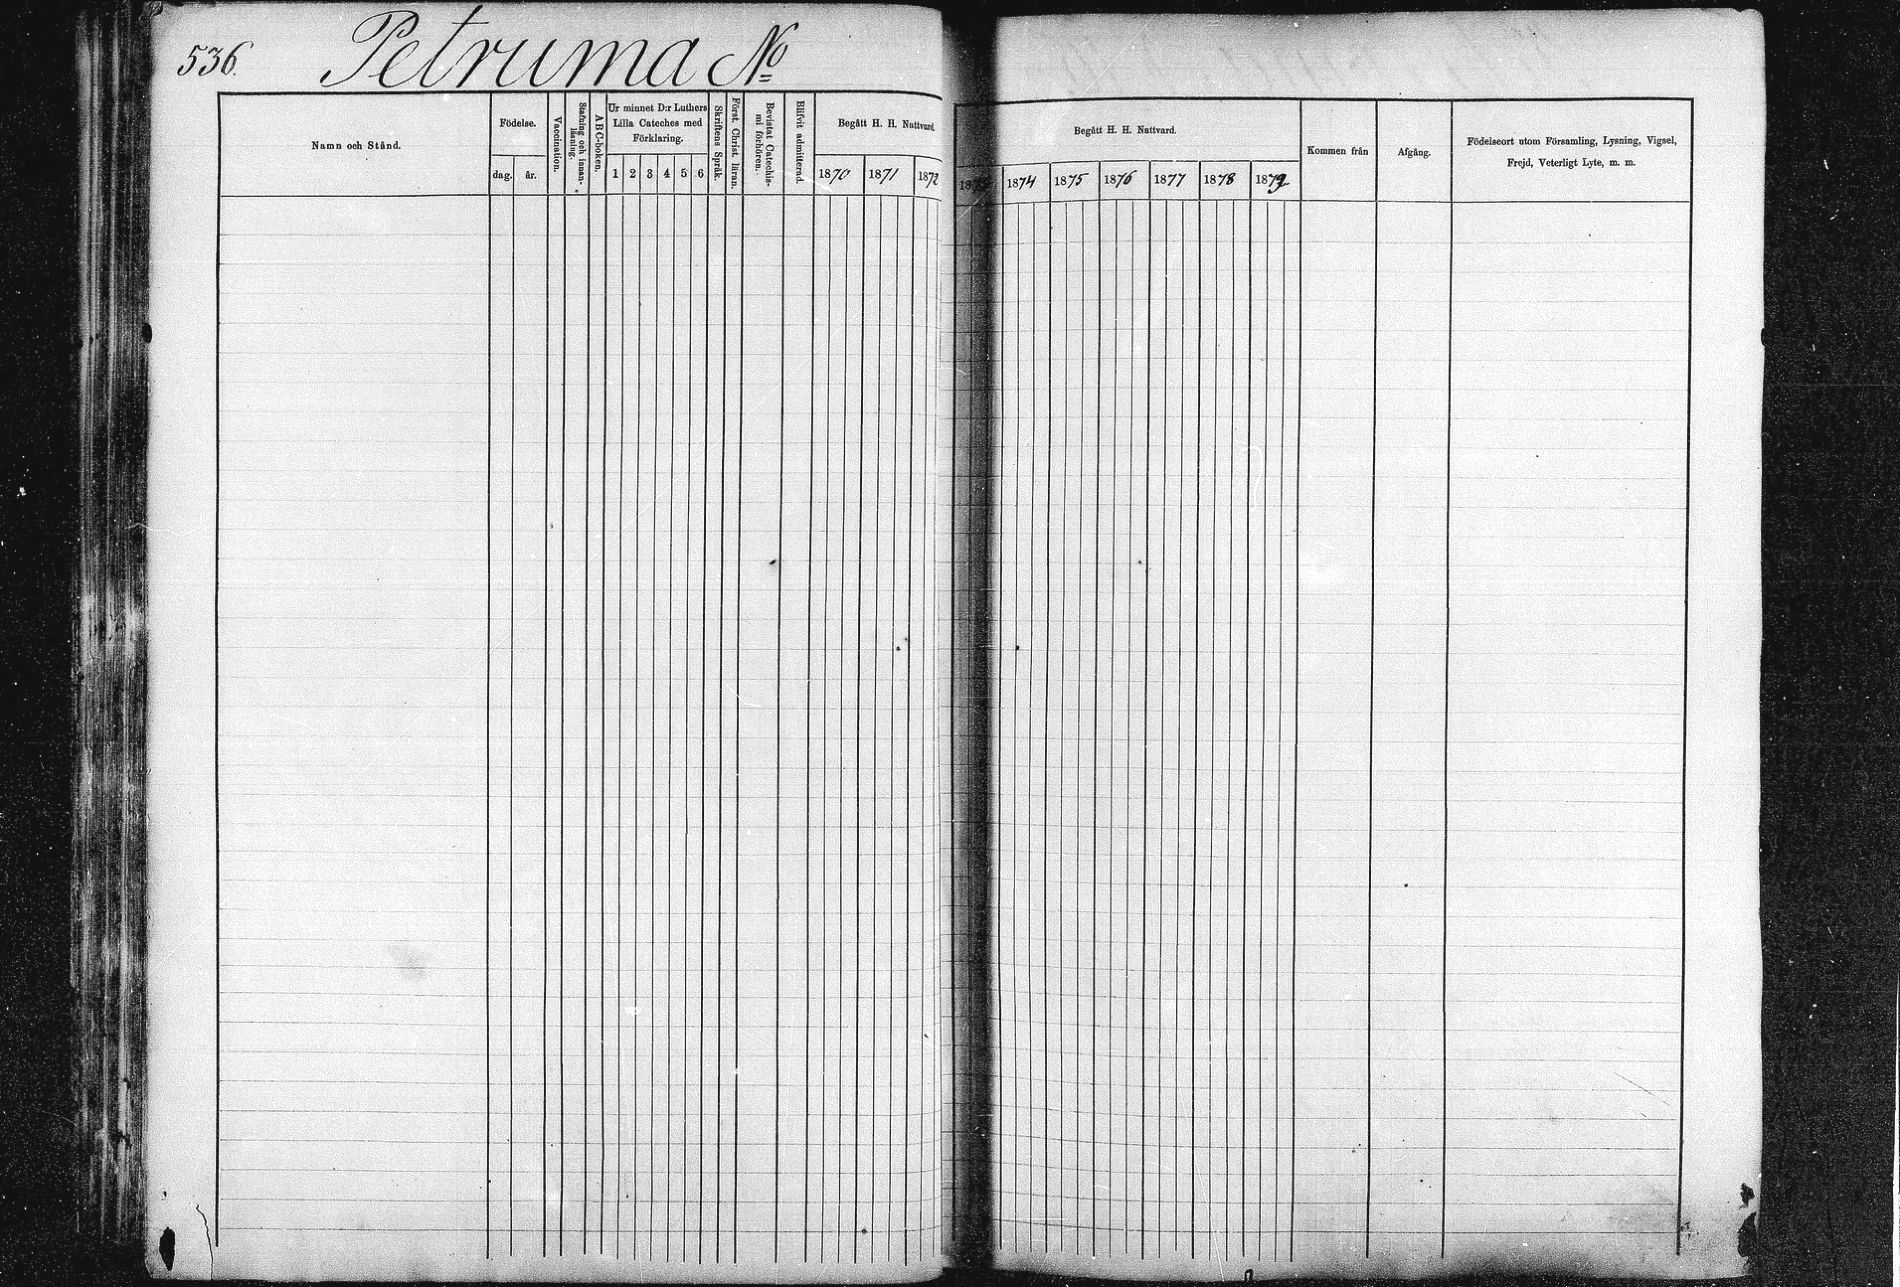 536. Petruma No
Namn och Stånd.
Födelse.
dag. år.
Vaccination.
Stafning och innan-
läsning.
ABC-boken.
Ur minnet D:r Luthers
Lilla Cateches med
Förklaring.
1 2 3 4 5 6
Skriftens Språk.
Först. Christ. läran.
Bevistat Catechis-
mi förhören.
Blifvit admitterad.
Begått H. H. Nattvard.
1870 1871 1872
Begått H. H. Nattvard.
1873 1874 1875 1876 1877 1878 1879
Kommen från
Afgång.
Födelseort utom Församling, Lysning, Vigsel,
Frejd, Veterligt Lyte, m. m.